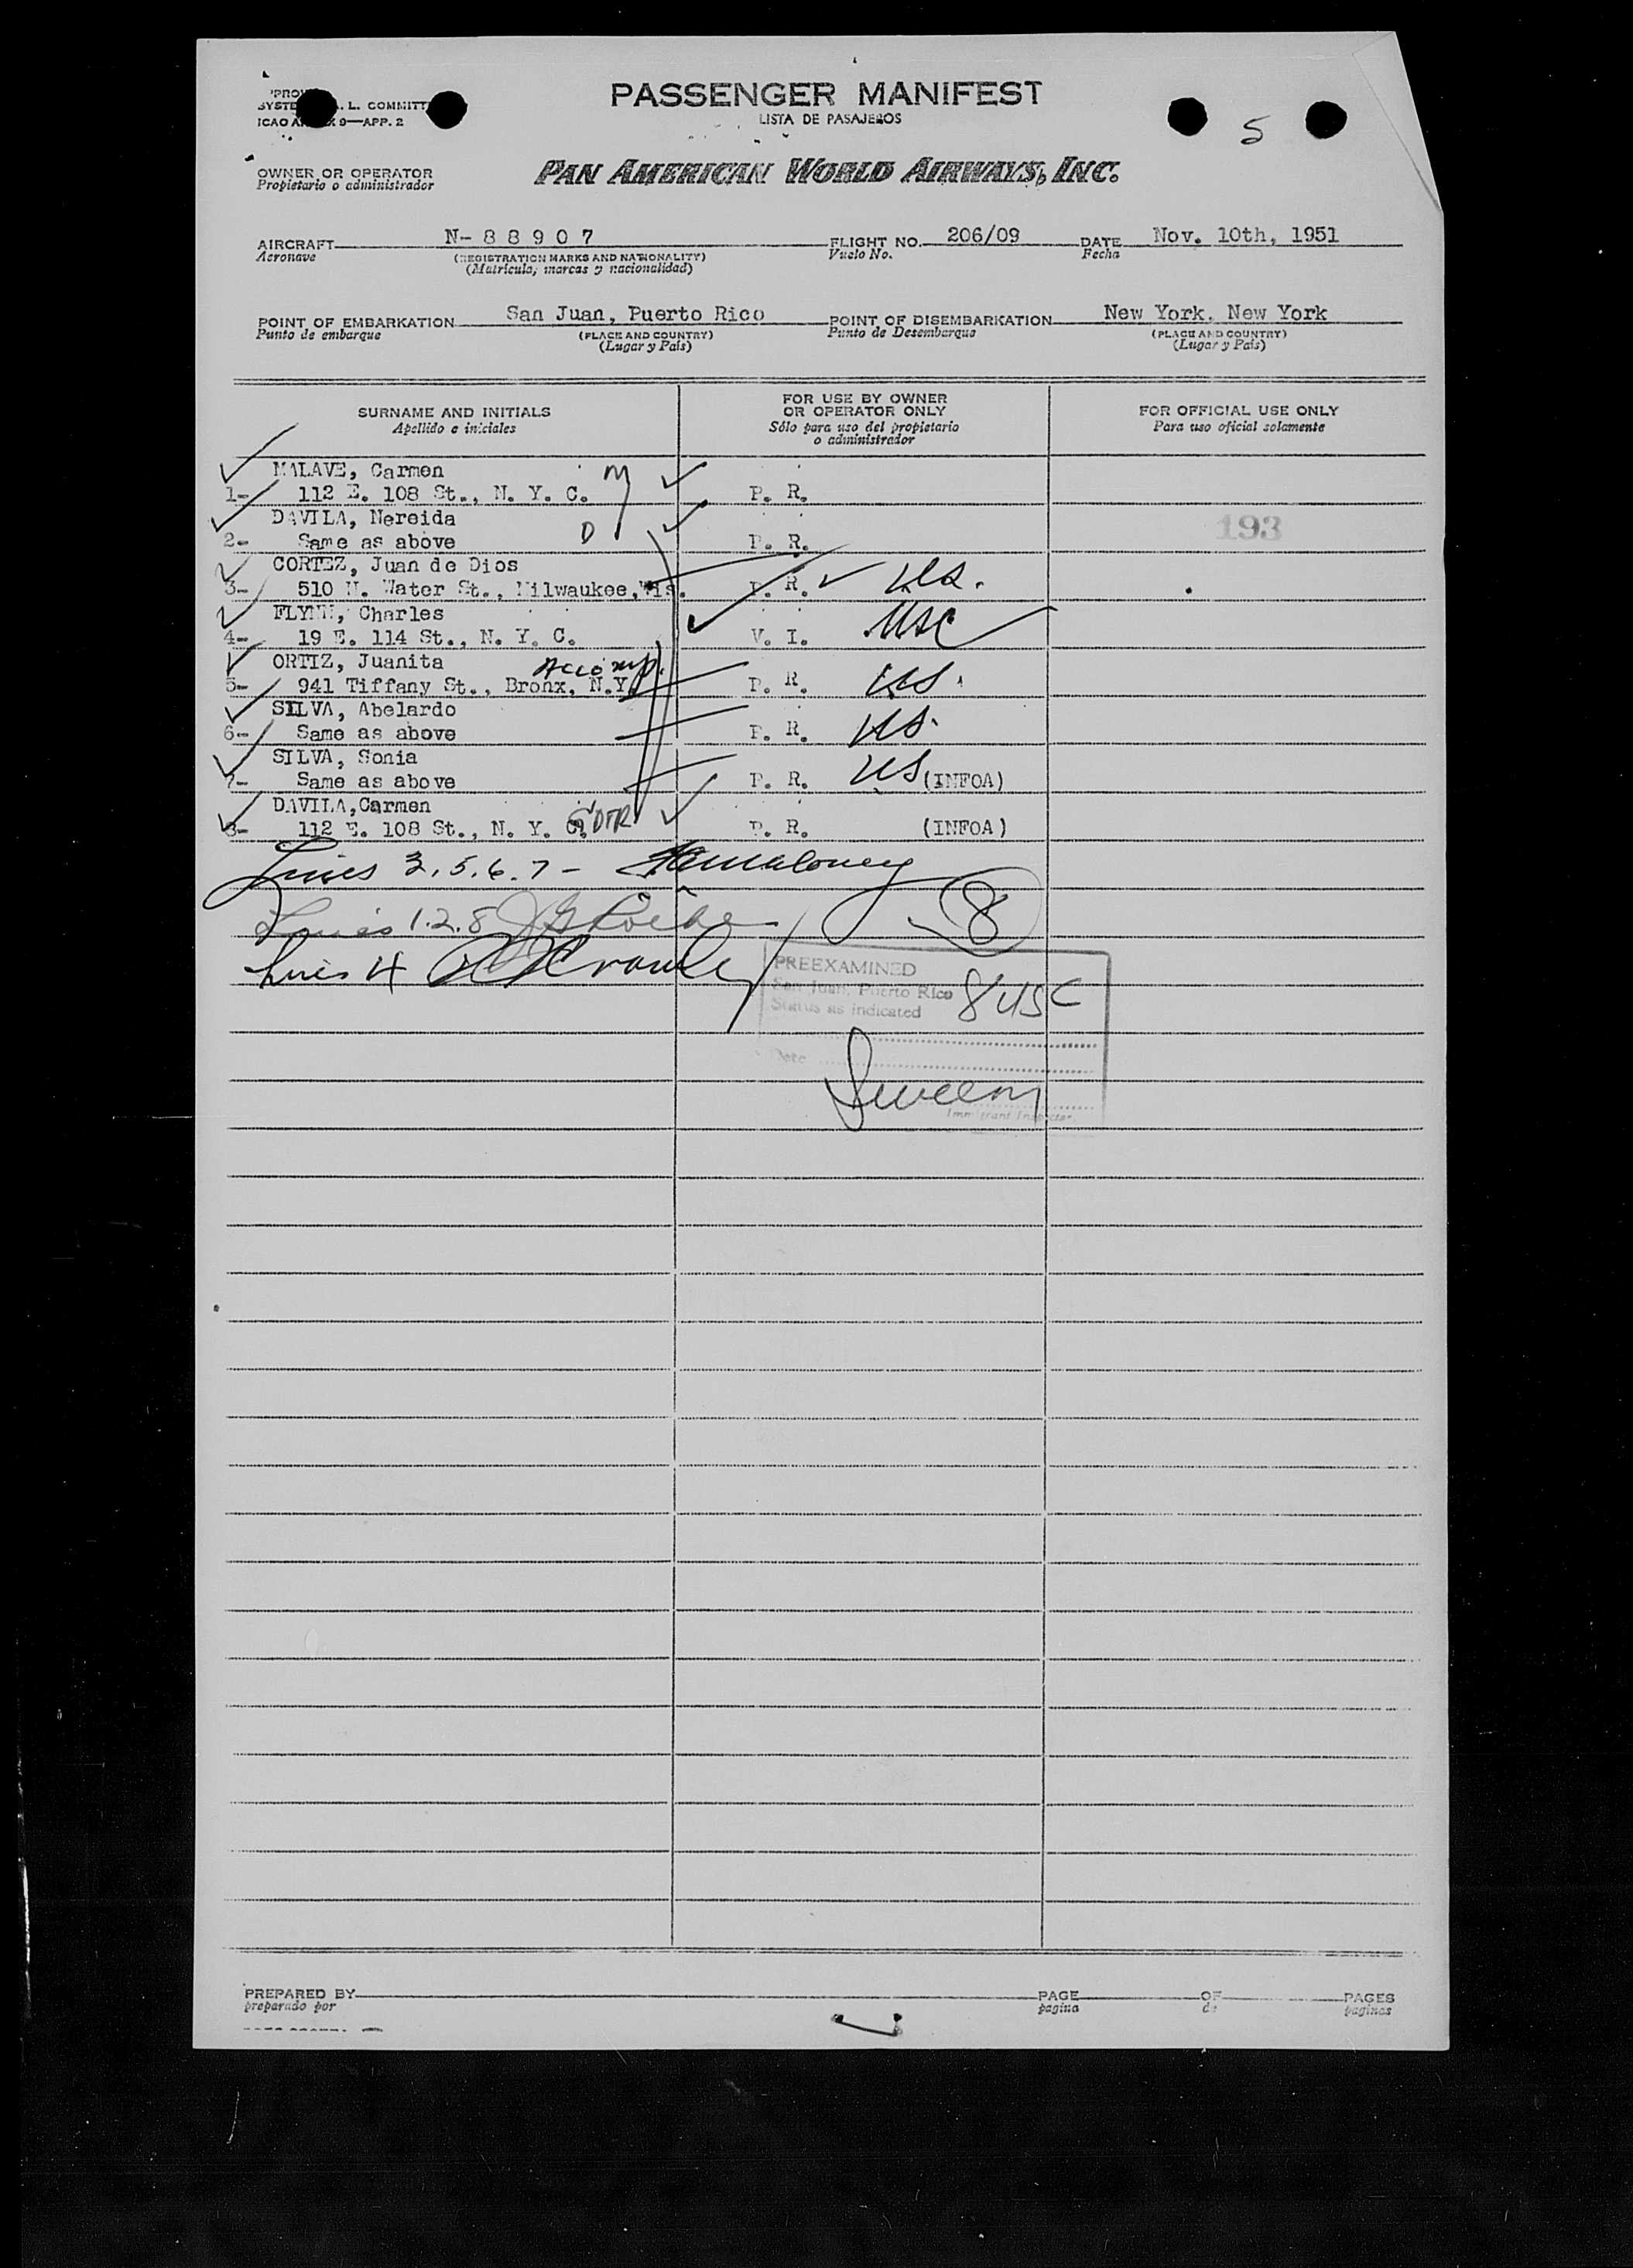 PASSENGER MANIFEST
LISTA DE PASAJEROS
5
L. COMMITT
ICAO 9—APP. 2
PAN AMERICAN WORLD AIRWAYS, INC.
OWNER OR OPERATOR
Propietario o administrador
AIRCRAFT N- 8 8 9 0 7 FLIGHT NO. 206/09 DATE Nov. 10th, 1951
Aeronave (REGISTRATION MARKS AND NATIONALITY) Vuelo No. Fecha
(Matricula, marcas y nacionalidad)
POINT OF EMBARKATION San Juan, Puerto Rico POINT OF DISEMBARKATION New York, New York
Punto de embarque (PLACE AND COUNTRY) Punto de Desembarque (PLACE AND COUNTRY)
(Lugar y País) (Lugar y País)
SURNAME AND INITIALS FOR USE BY OWNER OR OPERATOR ONLY FOR OFFICIAL USE ONLY
Apellido e iniciales Sólo para uso del propietario o administrador Para uso oficial solamente
MALAVE, Carmen M
1- 112 E. 108 St., N. Y. C. P. R.
DAVILA, Nereida 193
2- Same as above D P. R.
CORTEZ, Juan de Dios
3- 510 N. Water St., Milwaukee, Wis. P. R. US.
FLYNN, Charles
4- 19 E. 114 St., N. Y. C. V. I. USC
ORTIZ, Juanita Accomp.
5- 941 Tiffany St., Bronx, N.Y. P. R. US.
SILVA, Abelardo
6- Same as above P. R. US.
SILVA, Sonia
7- Same as above P. R. US (INFOA)
DAVILA, Carmen
8- 112 E. 108 St., N. Y. C. P. R. (INFOA)
Lines 3.5.6.7 - Maloney
Lines 1.2.8 8
Lines 4
PREEXAMINED
San Juan, Puerto Rico 8 USC
Status as indicated
Date
Sweeny
Immigrant Inspector
PREPARED BY PAGE OF PAGES
preparado por pagina de paginas